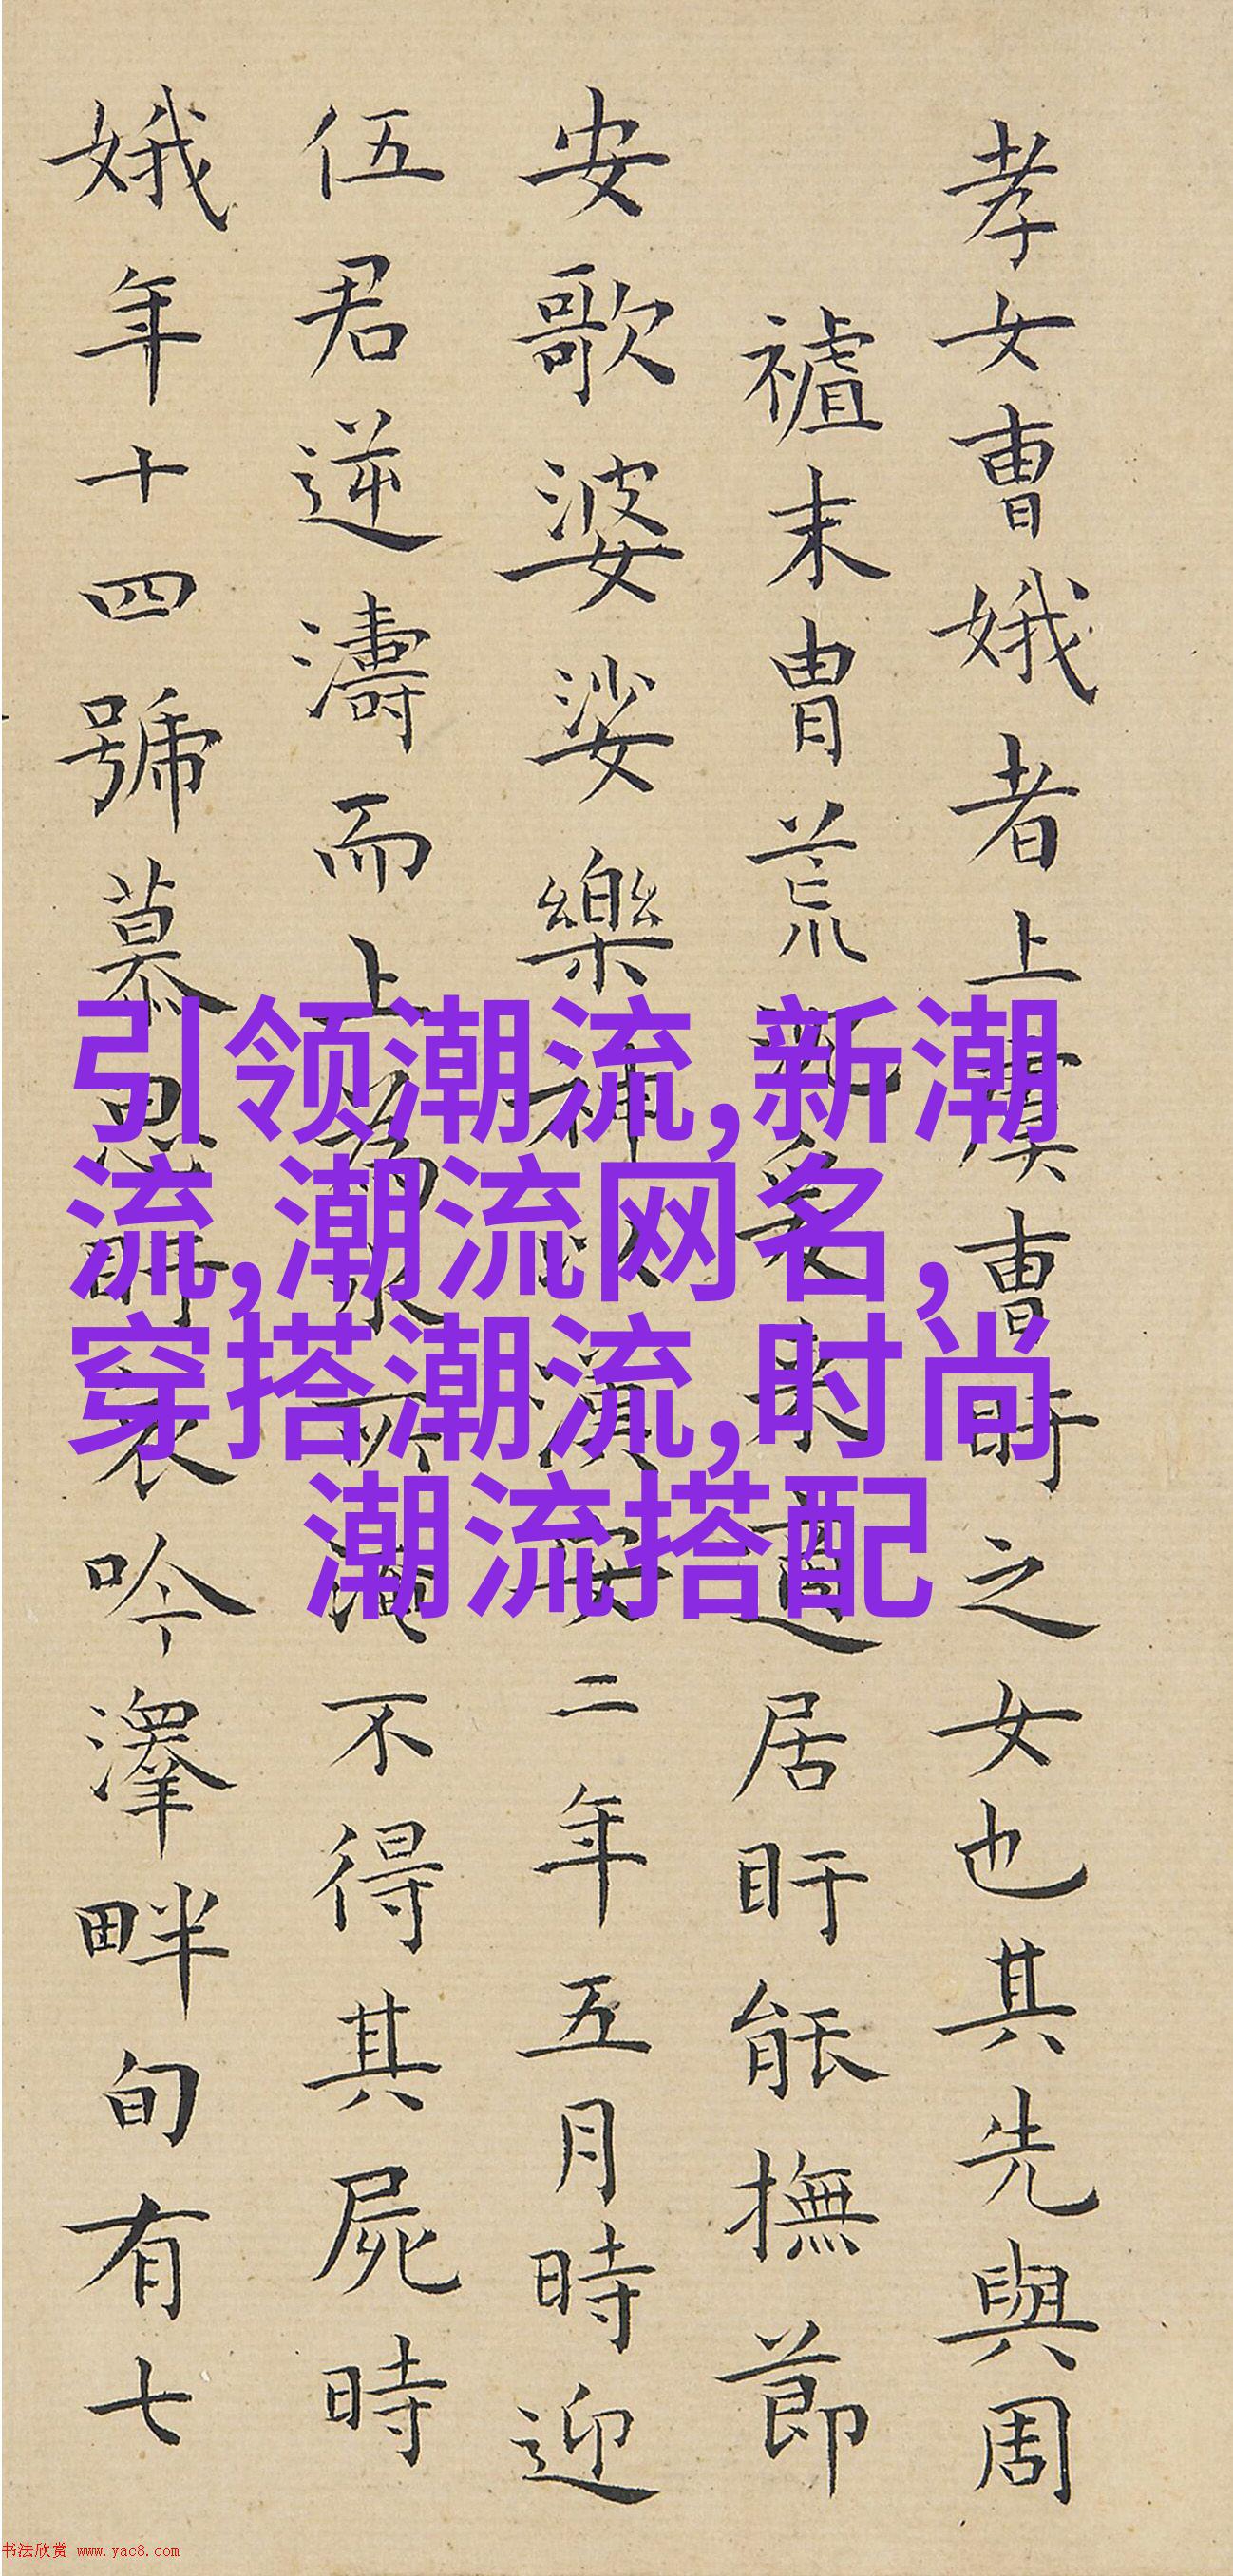 孝女曺娥者上虞曺盱之女也其先與周
禇末胄荒爰来適居盱能撫節
安歌婆娑樂神漢安二年五月時迎
伍君逆濤而上為水所淹不得其屍時
娥年十四號慕思盱哀吟澤畔旬有七
引领潮流,新潮
流,潮流网名,
穿搭潮流,时尚
潮流搭配
书法欣赏 www.yac8.com